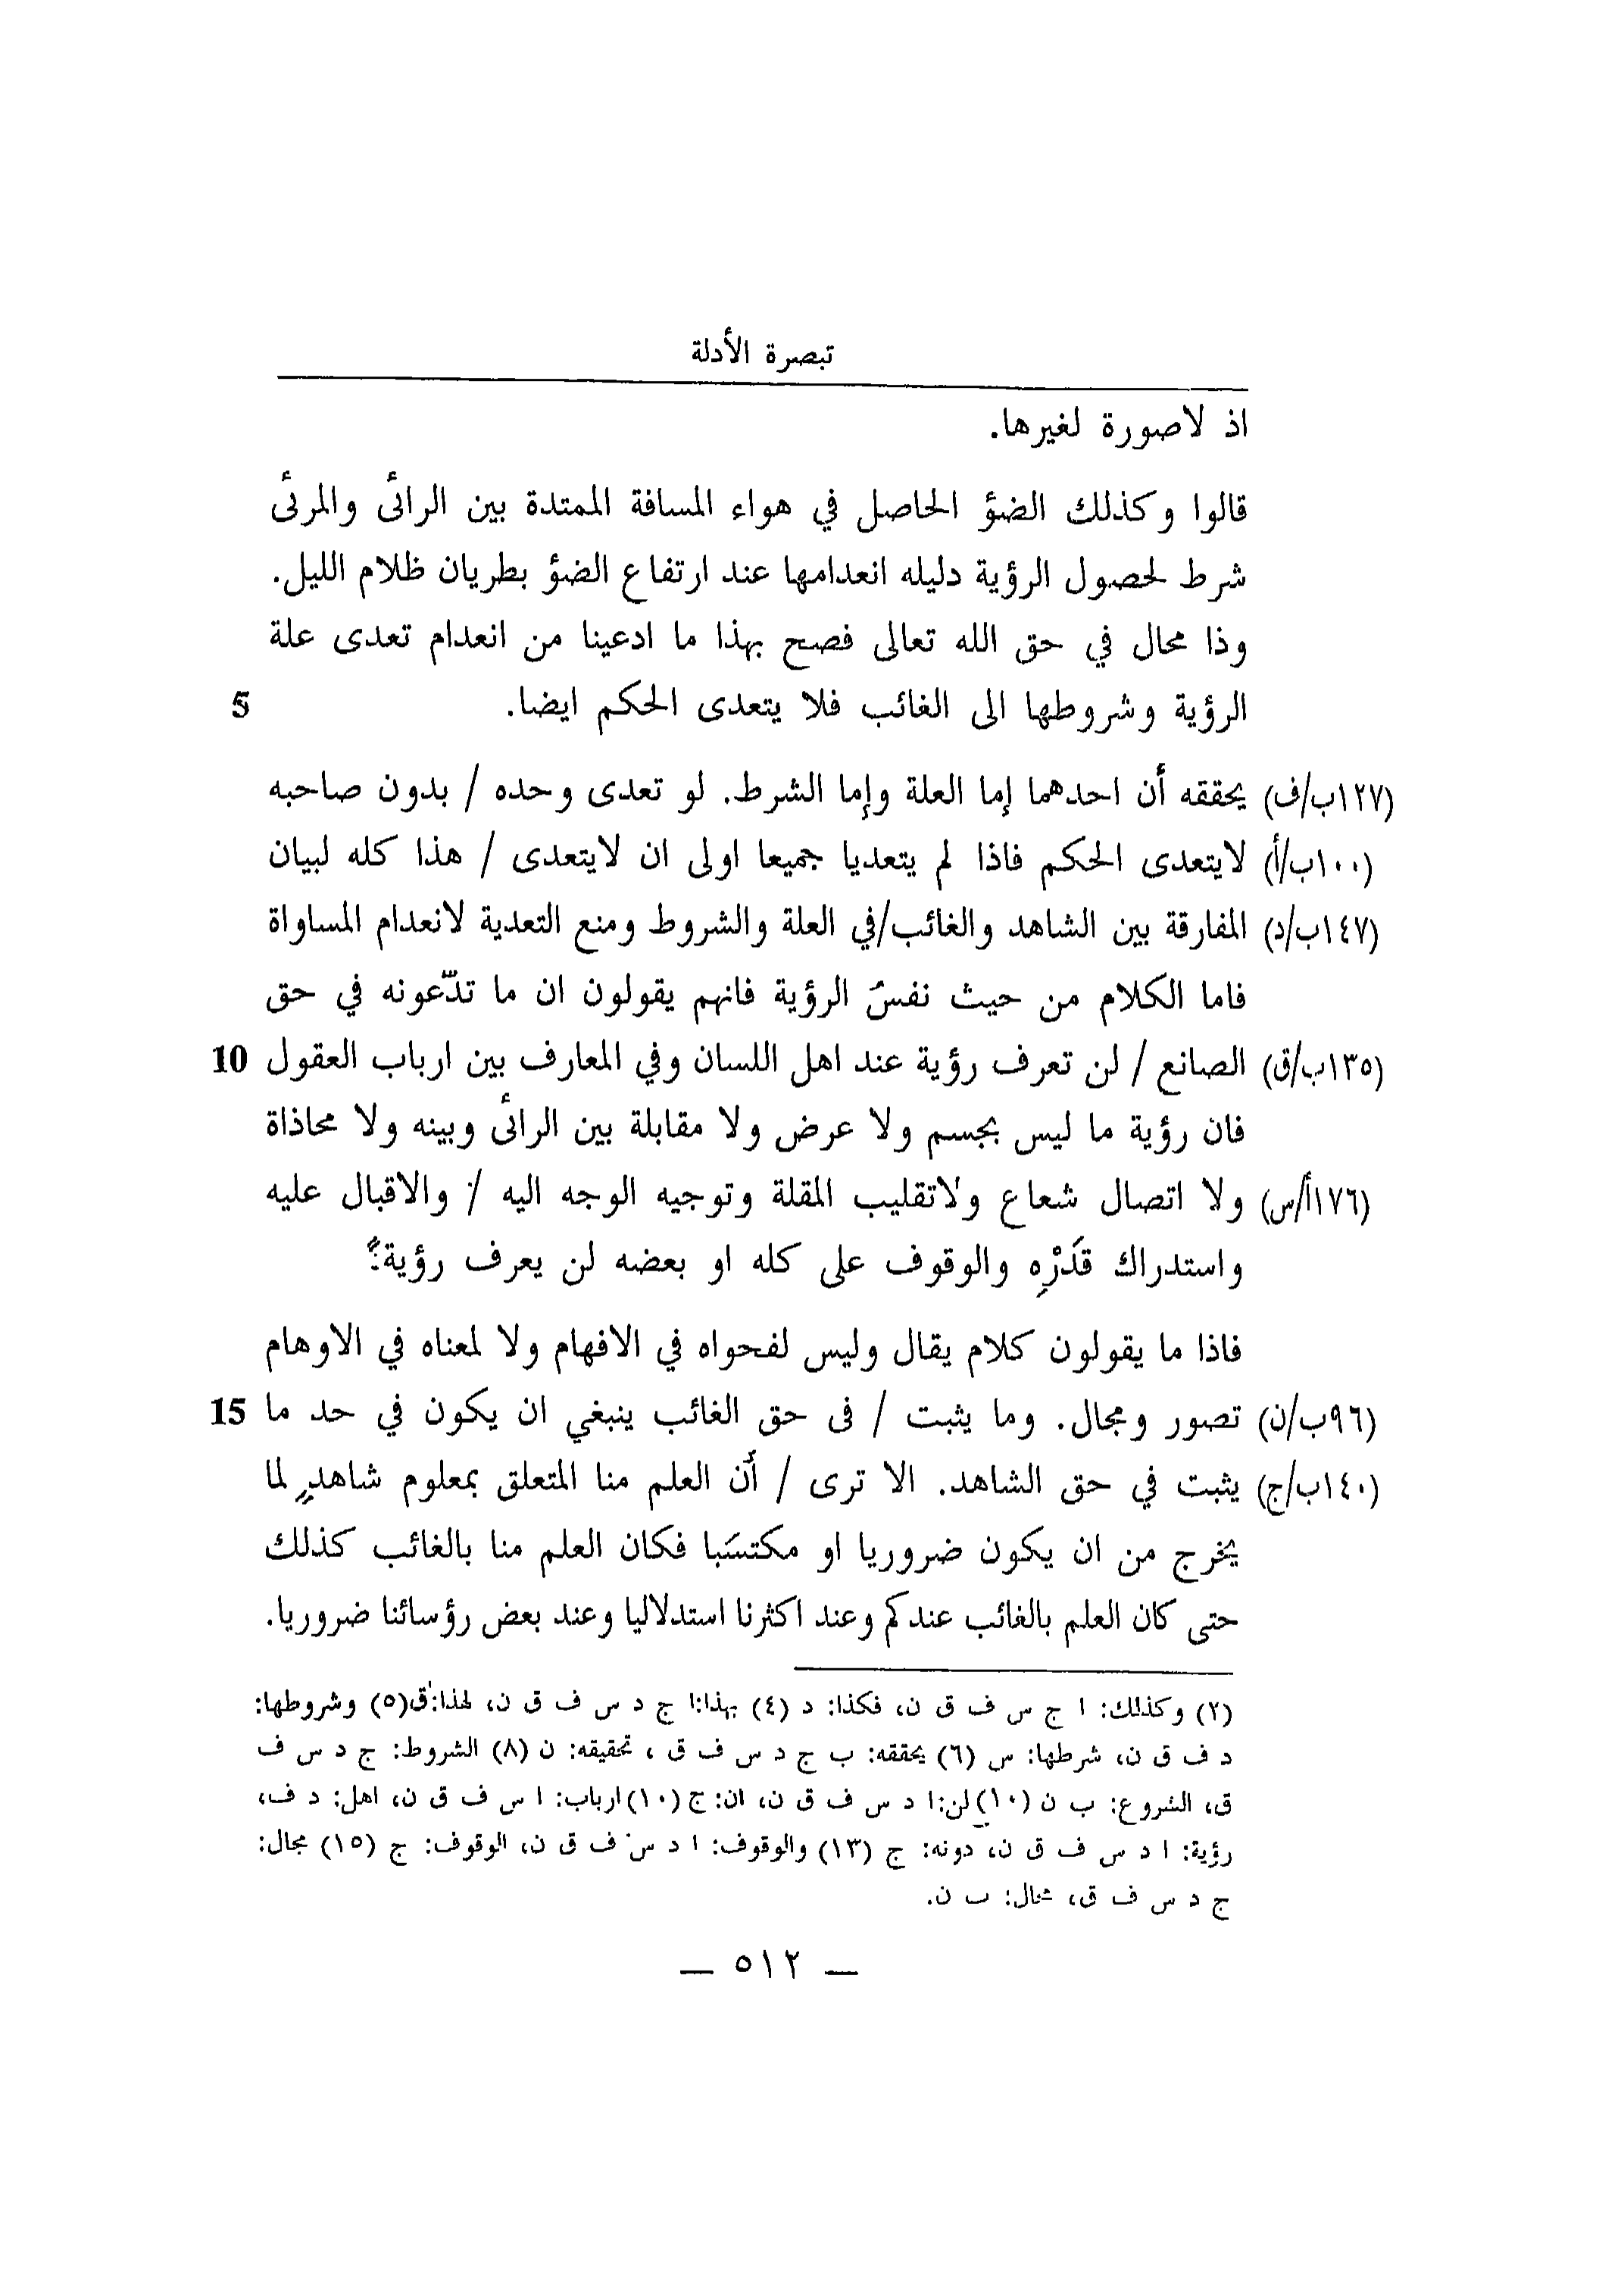 تبصرة الأدلة
اذ لاصورة لغيرها.
قالوا وكذلك الضؤ الحاصل في هواء المسافة الممتدة بين الرائى والمرئى
شرط لحصول الرؤية دليله انعدامها عند ارتفاع الضؤ بطريان ظلام الليل.
وذا محال في حق الله تعالى فصح بهذا ما ادعينا من انعدام تعدى علة
الرؤية وشروطها الى الغائب فلا يتعدى الحكم ايضا. 5
(١٢٧ب/ف) يحققه أن احدهما إما العلة وإما الشرط. لو تعدى وحده / بدون صاحبه
(١٠٠ب/أ) لايتعدى الحكم فاذا لم يتعديا جميعا اولى ان لايتعدى / هذا كله لبيان
(١٤٧ب/د) المفارقة بين الشاهد والغائب/في العلة والشروط ومنع التعدية لانعدام المساواة
فاما الكلام من حيث نفسُ الرؤية فانهم يقولون ان ما تدّعونه في حق
(١٣٥ب/ق) الصانع / لن تعرف رؤية عند اهل اللسان وفي المعارف بين ارباب العقول 10
فان رؤية ما ليس بجسم ولا عرض ولا مقابلة بين الرائى وبينه ولا محاذاة
(١٧٦أ/س) ولا اتصال شعاع ولاتقليب المقلة وتوجيه الوجه اليه / والاقبال عليه
واستدراك قَدْرِه والوقوف على كله او بعضه لن يعرف رؤيةً؟
فاذا ما يقولون كلام يقال وليس لفحواه في الافهام ولا لمعناه في الاوهام
(٩٦ب/ن) تصور ومجال. وما يثبت / فى حق الغائب ينبغي ان يكون في حد ما 15
(١٤٠ب/ج) يثبت في حق الشاهد. الا ترى / أن العلم منا المتعلق بمعلوم شاهدٍ لما
يخرج من ان يكون ضروريا او مكتسَبا فكان العلم منا بالغائب كذلك
حتى كان العلم بالغائب عندكم وعند اكثرنا استدلاليا وعند بعض رؤسائنا ضروريا.
(٢) وكذلك: ا ج س ف ق ن، فكذا: د (٤) بهذا: ا ج د س ف ق ن، لهذا: ق(٥) وشروطها:
د ف ق ن، شرطها: س (٦) يحققه: ب ج د س ف ق ، تحقيقه: ن (٨) الشروط: ج د س ف
ق، الشروع: ب ن (١٠) لن: ا د س ف ق ن، ان: ج (١٠) ارباب: ا س ف ق ن، اهل: د ف،
رؤية: ا د س ف ق ن، دونه: ج (١٣) والوقوف: ا د س ف ق ن، الوقوف: ج (١٥) مجال:
ج د س ف ق، محال: ب ن.
— ٥١٢ —